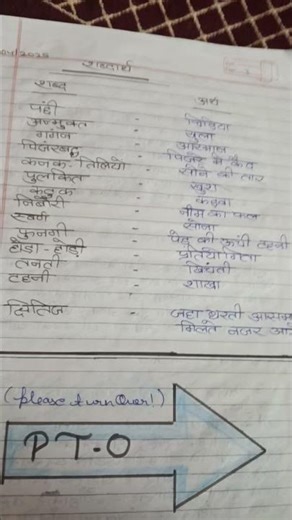 शब्दार्थ
शब्द अर्थ
पंछी - चिड़िया
उन्मुक्त - खुला
गगन - आसमान
पिंजरबद्ध - पिंजरे में कैद
कनक-तिलियाँ - सोने की तार
पुलकित - खुश
कटुक - कड़वा
निबौरी - नीम का फल
स्वर्ण - सोना
फुनगी - पेड़ की ऊंची टहनी
होड़ा-होड़ी - प्रतियोगिता
तनती - खिंचती
टहनी - शाखा
क्षितिज - जहा धरती
मिलते नजर
(please turn Over!)
PT-O